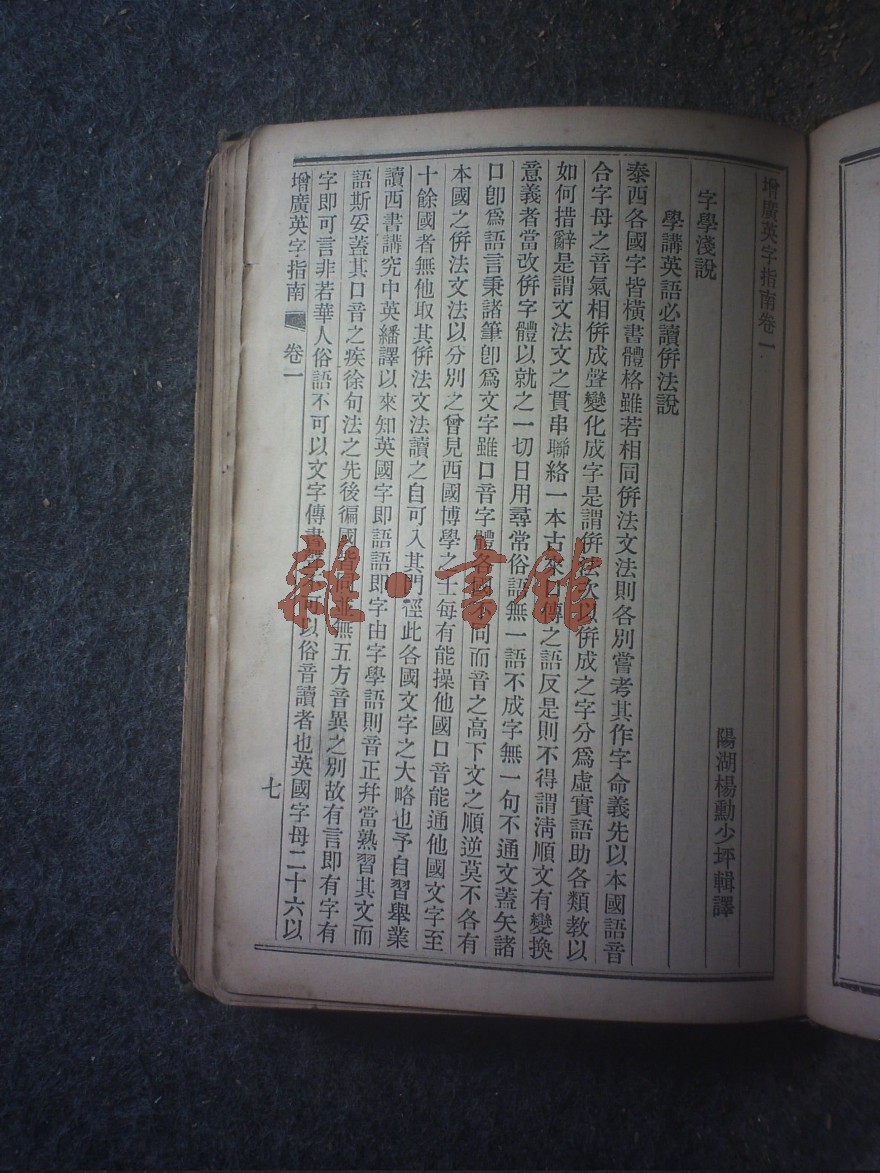 增廣英字指南卷一
字學淺說
陽湖楊勳少坪輯譯
學講英語必讀倂法說
泰西各國字皆橫書體格雖若相同倂法文法則各別嘗考其作字命義先以本國語音
合字母之音氣相倂成聲變化成字是謂倂法次以倂成之字分爲虛實語助各類教以
如何措辭是謂文法文之貫串聯絡一本古來口傳之語反是則不得謂淸順文有變換
意義者當改倂字體以就之一切日用尋常俗語無一語不成字無一句不通文蓋矢諸
口卽爲語言秉諸筆卽爲文字雖口音字體各國不同而音之高下文之順逆莫不各有
本國之倂法文法以分別之曾見西國博學之士每有能操他國口音能通他國文字至
十餘國者無他取其倂法文法讀之自可入其門徑此各國文字之大略也予自習舉業
讀西書講究中英繙譯以來知英國字即語語即字由字學語則音正幷當熟習其文而
語斯妥蓋其口音之疾徐句法之先後徧國皆同並無五方音異之別故有言即有字有
字即可言非若華人俗語不可以文字傳書不可以俗音讀者也英國字母二十六以
增廣英字指南
卷一
七
雜·書館